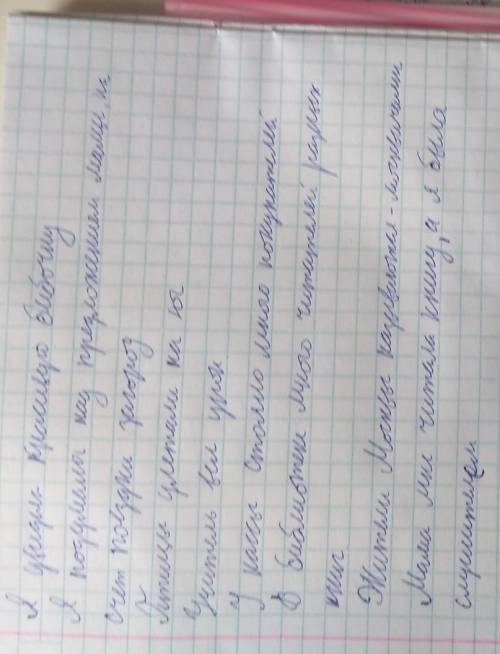 Я увидел красивую бабочку
Я подумала над предложением мамы, на
счет поездки загород
Птицы улетали на юг
Учитель вел урок
У кассы стояло много покупателей
В библиотеке много читателей разных
книг
Жители Москвы называются - москвичами
Мама мне читала книгу, а я была
слушателем